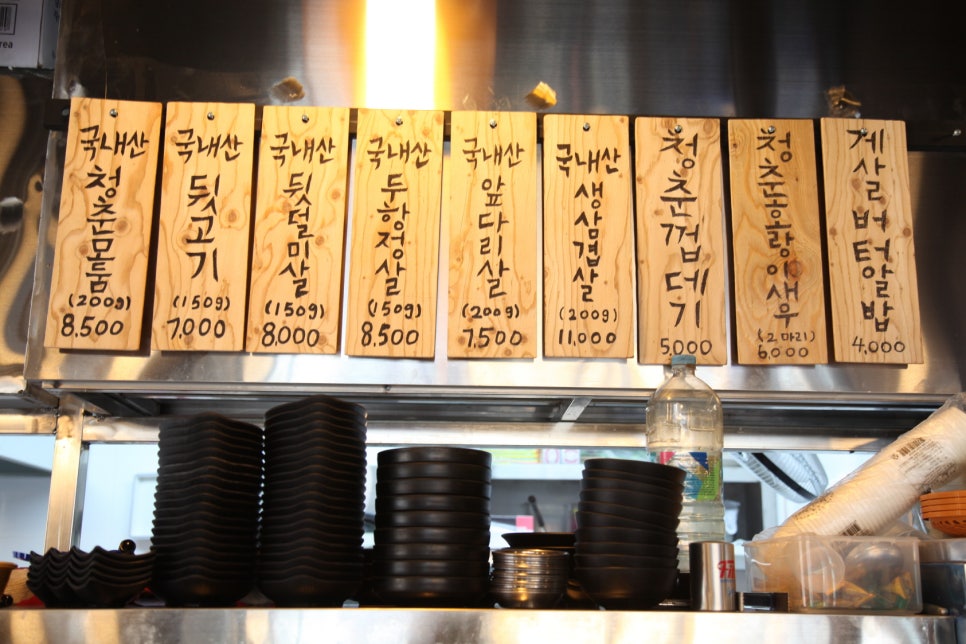 국내산
청춘모둠
(200g)
8,500
국내산
뒷고기
(150g)
7,000
국내산
뒷덜미살
(150g)
8,000
국내산
두항정살
(150g)
8,500
국내산
앞다리살
(200g)
7,500
국내산
생삼겹살
(200g)
11,000
청춘껍데기
5,000
청춘호랑이새우
(2마리)
6,000
계사랄버텅알밥
4,000
rea